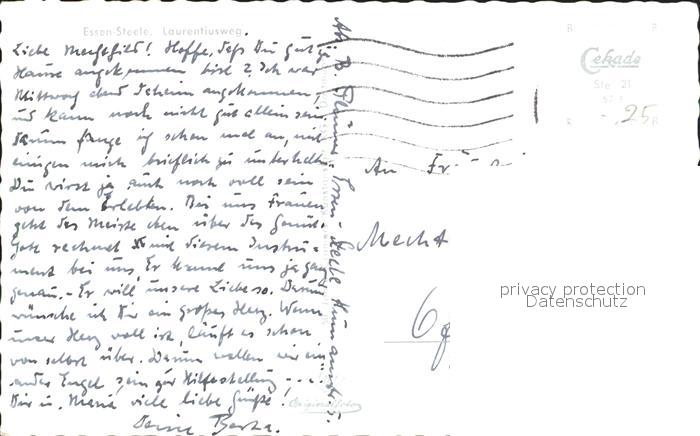 Essen-Steele, Laurentiusweg.
Liebe Mechthild! Hoffe, daß Du gut zu
Hause angekommen bist? Ich war
Mittwoch abend daheim angekommen,
und kann noch nicht gut allein sein,
darum fange ich schon mal an, mit
einigen mich brieflich zu unterhalten.
Du wirst ja auch noch voll sein
von dem Erlebten. Bei uns Frauen
geht das Meiste eben über das Gemüt.
Gott rechnet mit diesem Instru-
ment bei uns, Er kennt uns ja ganz
genau. - Er will unsere Liebe so. Darum
wünsche ich Dir ein großes Herz. Wenn
unser Herz voll ist, läuft es schon
von selbst über. Darum wollen wir ein-
ander Engel sein zur Hilfestellung ....
Dir u. Maria viele liebe Grüße!
Deine Berta.
Abs. B. Essen-Steele
Originalfoto
Cekade
Ste 21
-,25
An Fr
Mecht
6
privacy protection
Datenschutz